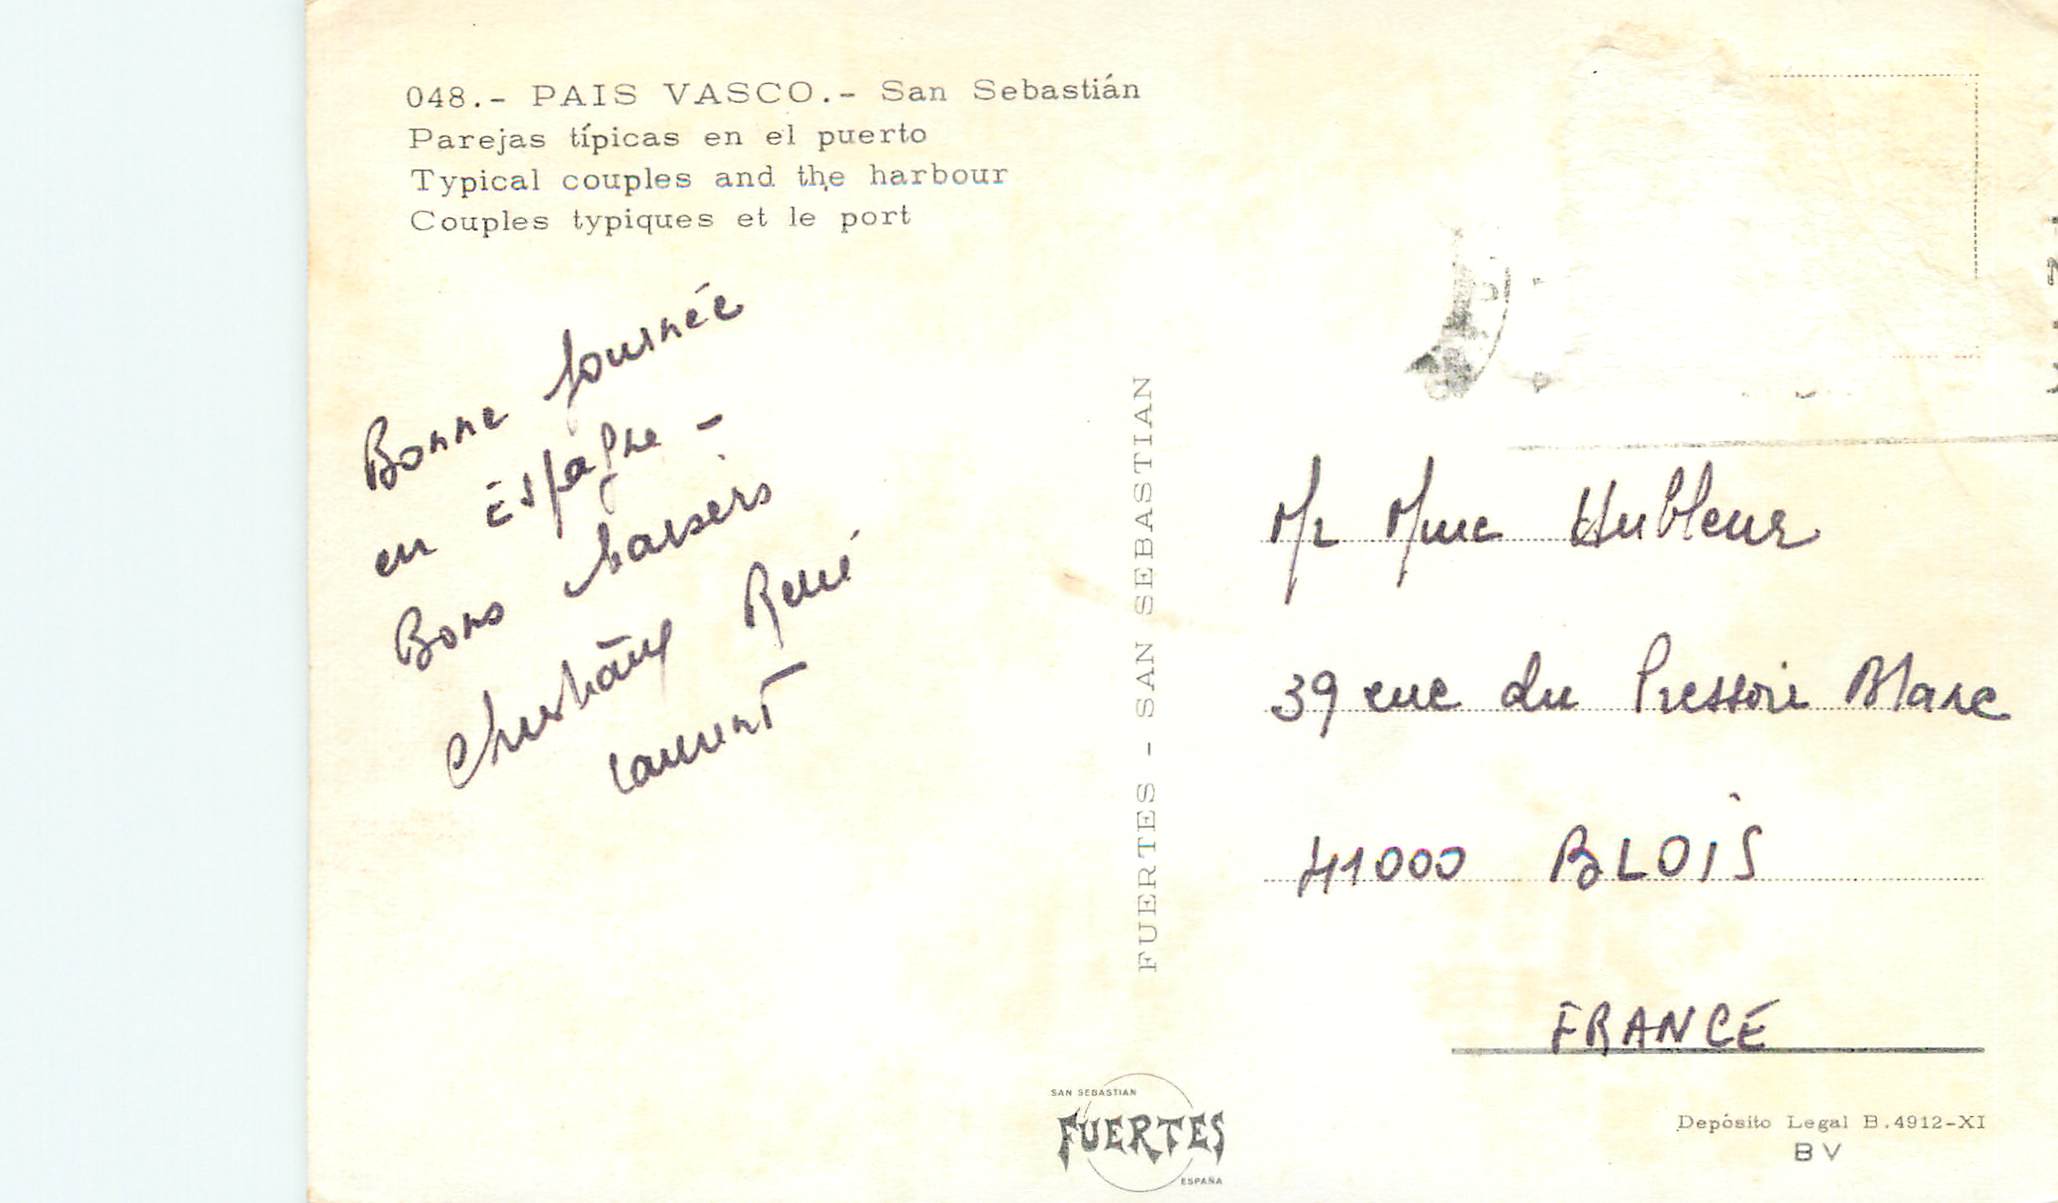 048.- PAIS VASCO.- San Sebastián
Parejas típicas en el puerto
Typical couples and the harbour
Couples typiques et le port
Bonne journée
en Espagne -
Bons baisers
René
Laurent
FUERTES - SAN SEBASTIAN
Mr Mme Hubleur
39 rue du Pressoir Blanc
41000 BLOIS
FRANCE
SAN SEBASTIAN
FUERTES
ESPAÑA
Depósito Legal B.4912-XI
BV